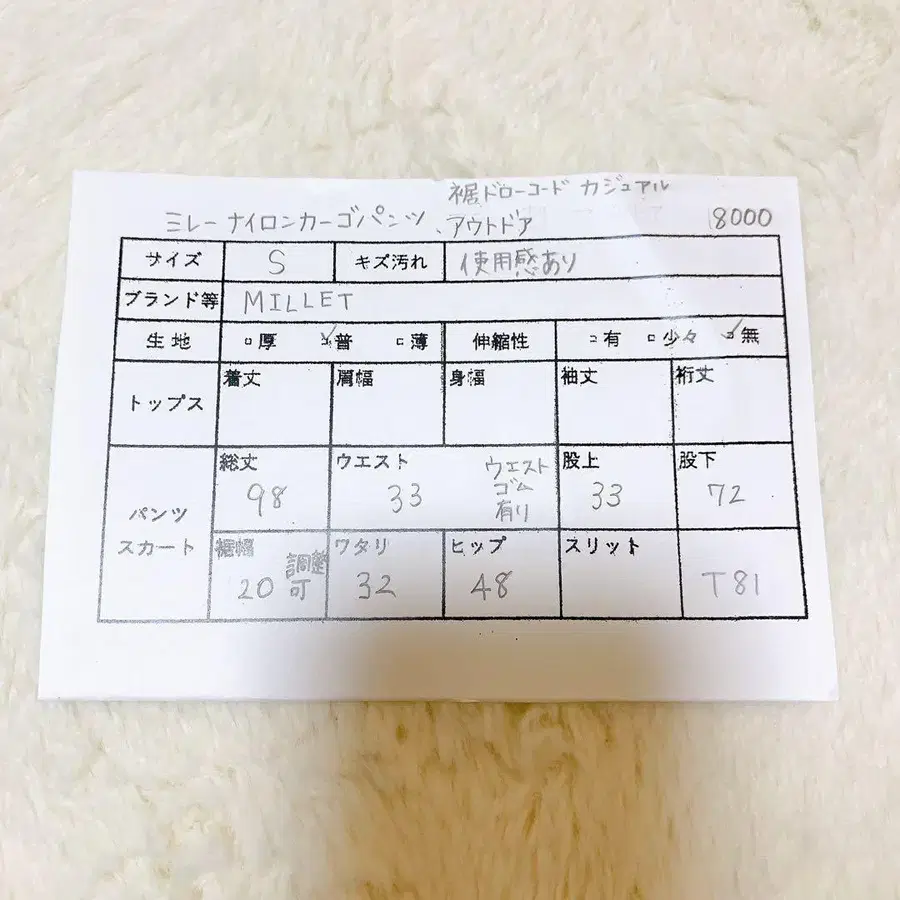 裾ドローコード カジュアル
ミレーナイロンカーゴパンツ、アウトドア 8000
サイズ S キズ汚れ 使用感あり
ブランド等 MILLET
生地 □厚 ☑普 □薄 伸縮性 □有 □少々 ☑無
トップス 着丈 肩幅 身幅 袖丈 裄丈
パンツ スカート
総丈 98 ウエスト 33 ウエスト ゴム 有り 股上 33 股下 72
裾幅 20 調整 可 ワタリ 32 ヒップ 48 スリット T81